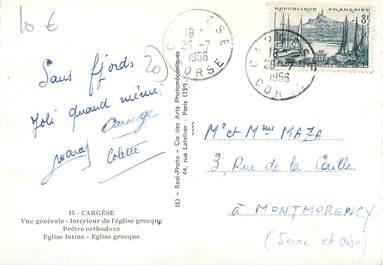 10 €
CARGÈSE
18 -
26 - 7
1956
CORSE
RÉPUBLIQUE FRANÇAISE
8F
CARGÈSE
18 -
26 - 7
1956
CORSE
20
Sans fjords
Joli quand même
Colette
(6) - Real-Photo - Cie des Arts Photomécaniques
44, rue Letellier - Paris (15e)
Mr et Mme MAZA
3, Rue de la Caille
à MONTMORENCY
(Seine et Oise)
15 - CARGÈSE
Vue générale - Intérieur de l'église grecque
Prêtre orthodoxe
Eglise latine - Eglise grecque